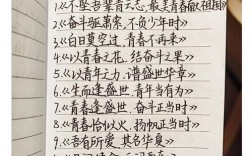 1.《不坠吾辈青云志,最美青春献祖国》
2.《奋斗驱萧索,不负少年时》
3.《白日莫空过,青春不再来》
4.《以青春之花,结奋斗之果》
5.《以青年力,谱盛世华章》
6.《生而逢盛世,青年当有为》
7.《青春逢盛世,奋斗正当时》
8.《青春恰似火,扬帆正当时》
9.《吾有所爱,其名华夏》